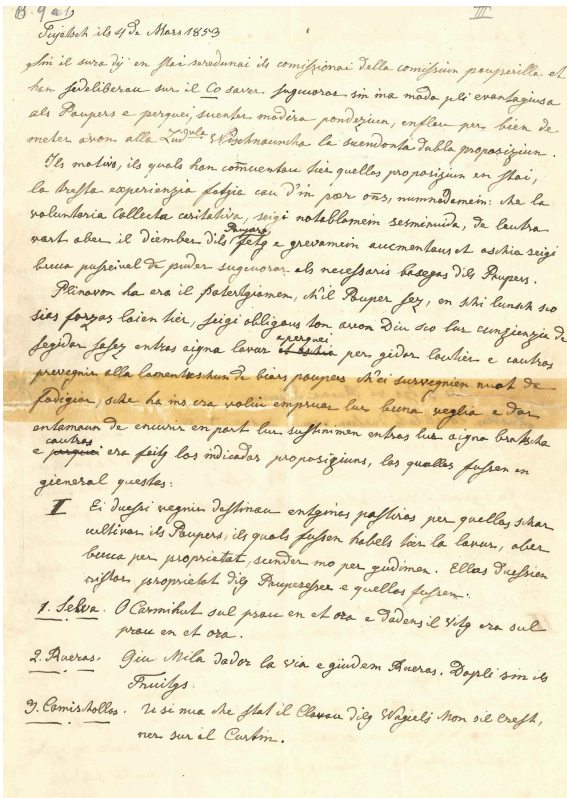 B. 9 a 1)
III
Tujetsch ils 4 de Mars 1853
Sin il sura dij en stai seredunai ils comissionai della comissiun pauperilla et
han sedeliberau sur il Co saver suguorar sin ina moda pli evantagiusa
als Paupers e perquei, suenter madira ponderziun, enflau per bien de
meter avon alla Lud. gula Vischnauncha la suendonta dubla proposiziun.
Ils motivs, ils quals han comuentau tier quellas proposiziun en stai,
la trista experienzia fatgia cau d'in pær oñs, numnadamein: che la
voluntaria collecta caritativa, seigi notablamein sesminuida, de lautra
vart aber il diember dils Paupers fetg e grevamein aucmentaus et aschia seigi
bucca pusseival de puder suguorar als necessaris basegns dils Paupers.
Plinavon ha era il patertgiamen, ch'il Pauper sez, en schi lunsch sco
sias forzas laien tier, seigi obligaus ton avon Diu sco lur cunzienzia de
segidar sasez entras aigna lavur et aschia a perquei per gidar lautier e cautras
prevegnir alla lamentaschun de biars paupers ch'ei survegnien nuot da
fadigiar, sche ha ins era voliu empruar lur buna veglia e dar
entamaun de encurir en part lur sustinimen entras lur aigna bratscha
e perquei cautras era feitg las indicadas proposiziuns, las qualas fussen en
gieneral questas:
I Ei duessi vegnir destinau entginas pastiras per quellas schar
cultivar ils Paupers, ils quals fussen habels tier la lavur, aber
bucca per proprietat, sunder mo per gudimen. Ellas duessien
ristar proprietat dils Pauperesser e quellas fussen.
1. Selva. O Carmihut sul prau en et ora e dadens il vitg era sul
prau en et ora.
2. Rueras. Giu Mila dador la via e giudem Rueras. Dapli sin ils
Fruitgs.
3. Camischollas. Si nua che stat il Clavau dils Vagielj Mon sil Crest,
ner sur il Curtin.